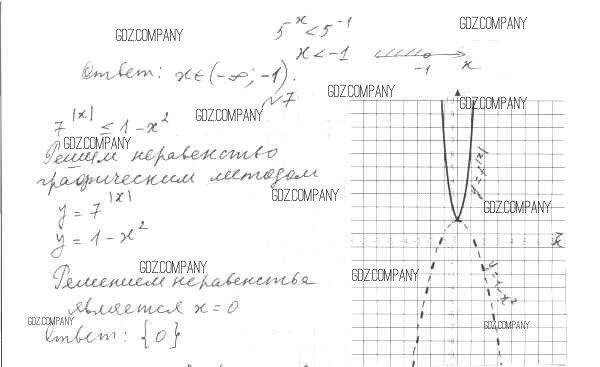 5^x < 5^-1
GDZ.COMPANY
GDZ.COMPANY
x < -1
-1
x
Ответ: x ∈ (-∞; -1).
№7
GDZ.COMPANY
GDZ.COMPANY
GDZ.COMPANY
7^|x| ≤ 1 - x^2
GDZ.COMPANY
Решим неравенство
графическим методом
GDZ.COMPANY
y = 7^|x|
y = 7^|x|
GDZ.COMPANY
y = 1 - x^2
x
GDZ.COMPANY
GDZ.COMPANY
y = 1 - x^2
Решением неравенства
является x = 0
GDZ.COMPANY
GDZ.COMPANY
Ответ: {0}